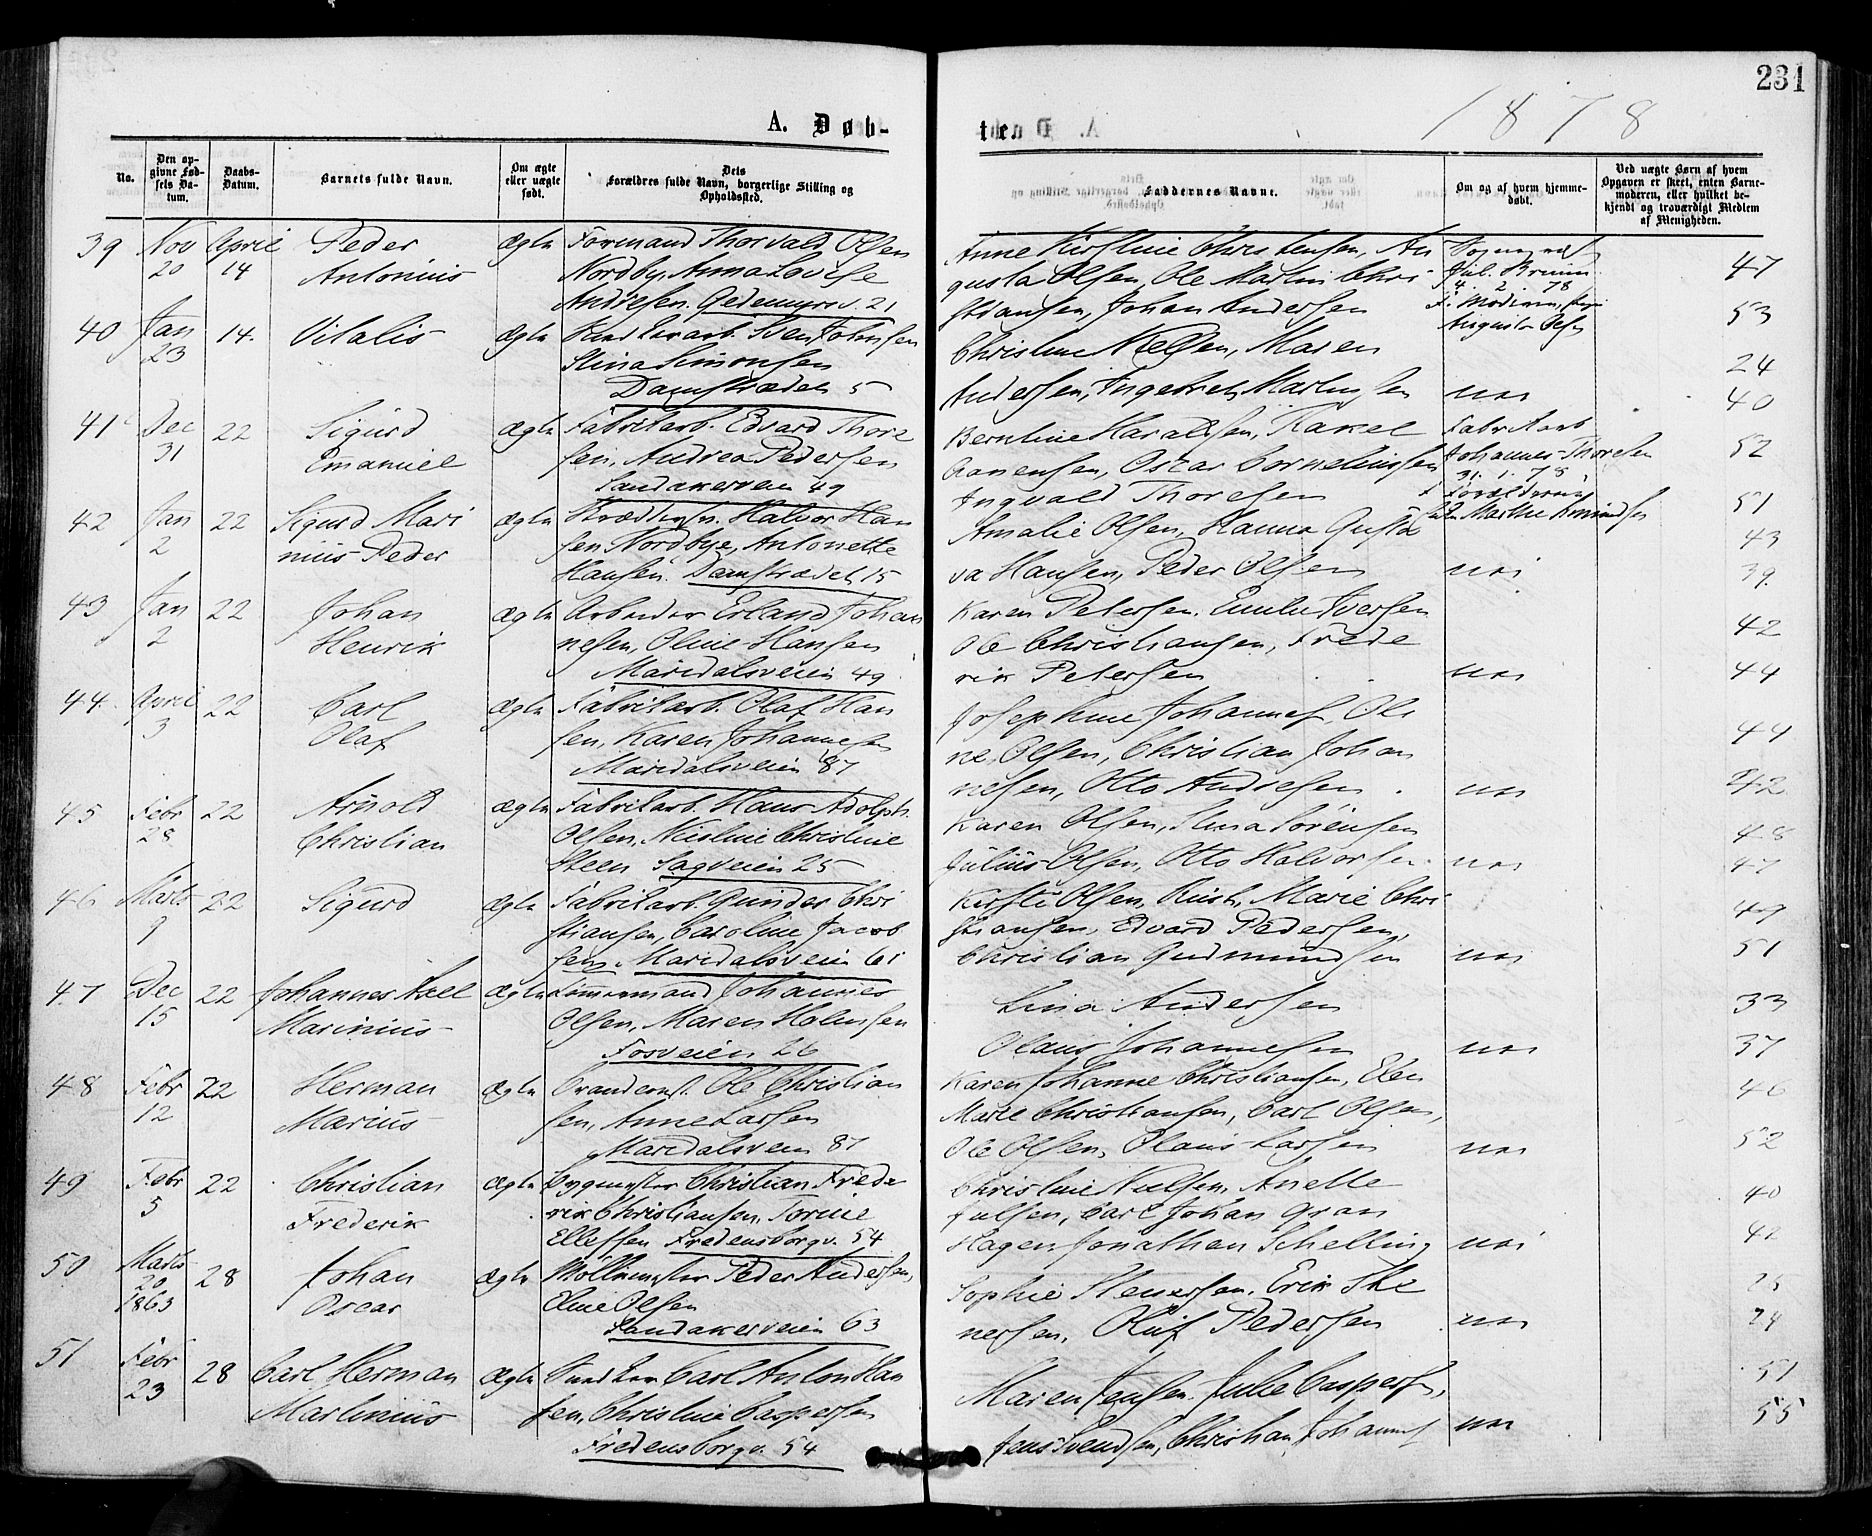 231
A. Døb-
ten
1878
No.
Den op-
givne Fød-
sels Da-
tum.
Daabs-
Datum.
Barnets fulde Navn.
Om ægte
eller uægte
født.
Dets
Forældres fulde Navn, borgerlige Stilling og
Opholdssted.
Faddernes Navne.
Om og af hvem hjemme-
døbt.
Ved uægte Børn af hvem
Opgaven er skeet, enten Barne-
moderen, eller hvilket be-
kjendt og troværdigt Medlem
af Menigheden.
39 Nov April Peder Ægte Formand Thorvald Olsen
20 14 Antonius Nordby, Anna Lovise
Andresen. Gedemyrsv. 21
Anne Kirstine Christensen, Au
gusta Olsen, Ole Martin Chri-
stiansen, Johan Andersen
Sognepræst
Jul. Bruun
4. 2 78
Augusta Olsen
47
53
40 Jan 14. Vitalis Ægte Sven Johnsen
23 Stina Simonsen
Damstrædet 5
Christine Nielsen, Maren
Andersen, Ingebret Martinsen nei
24
40
41 Dec 22 Sigurd Ægte Fabrikarb. Edvard Thore
31 Emanuel sen, Andrea Pedersen
Sandakerveien 49
Berntine Haraldsen, Rakel
Aanensen, Oscar Corneliussen
Ingvald Thoresen
Fabrikarb
Johannes Thoresen
31. 1. 78
52
51
42 Jan 22 Sigurd Mari Ægte Halvor Han
2 nius Peder sen Nordbye, Antonette
Hansen. Damstrædet 15
Amalie Olsen, Hanna Gusta
va Hansen, Peder Olsen nei
43
39
43 Jan 22 Johan Ægte Arbeider Erland Johan
2 Henrik nesen, Oline Hansen
Maridalsveien 49
Karen Petersen, Emilie Iversen
Ole Christiansen, Frede
rik Petersen nei
42
44
44. April 22 Carl Ægte Fabrikarb. Olaf Han
3 Olaf sen, Karen Johannesen
Maridalsveien 87
Josephine Johannes, Oli
ne Olsen, Christian Johan
nesen, Otto Andresen nei
44
42
45 Febr 22 Arnold Ægte Fabrikarb. Hans Adolph
28 Christian Olsen, Nicoline Christine
Steen Sagveien 25
Karen Olsen, Stina Sørensen
Julius Olsen, Otto Halvorsen nei
48
47
46 Marts 22 Sigurd Ægte Fabrikarb. Gunder Chri
9 stiansen, Caroline Jacob
sen. Maridalsveien 61
Kirsti Olsen, Marie Chri
stiansen, Edvard Pedersen,
Christian Gudmundsen nei
49
51
47 Dec 22 Johannes Axel Ægte Tømmermand Johannes
15 Marinius Olsen, Maren Halvorsen
Fosveien 26
Lina Andersen
Olaus Johannesen nei
33
37
48 Febr 22 Herman Ægte Ole Christian
12 Marius sen, Anne Larsen
Maridalsveien 87
Karen Johanne Christiansen, Elen
Marie Christiansen, Carl Olsen,
Ole Olsen, Olaus Larsen nei
46
52
49 Febr 22 Christian Ægte Bygmester Christian Frede
5 Frederik rik Christiansen, Torine
Ellefsen Fredensborgv. 54
Christine Nielsen, Anette
Julsen, Carl Johan Gran
Hagen, Jonathan Schelling nei
40
42
50 Marts 28 Johan Ægte Møllemester Peder Andersen,
20 1863 Oscar Eline Olsen
Sandakerveien 63
Sophie Stenersen, Erik Ste
nersen, Oluf Pedersen nei
25
24
51 Febr 28 Carl Herman Ægte Carl Anton Han
23 Martinius sen, Christine Caspersen
Fredensborgv. 54
Maren Jensen, Julie Caspersen,
Jens Svendsen, Christian Johannes nei
51
55